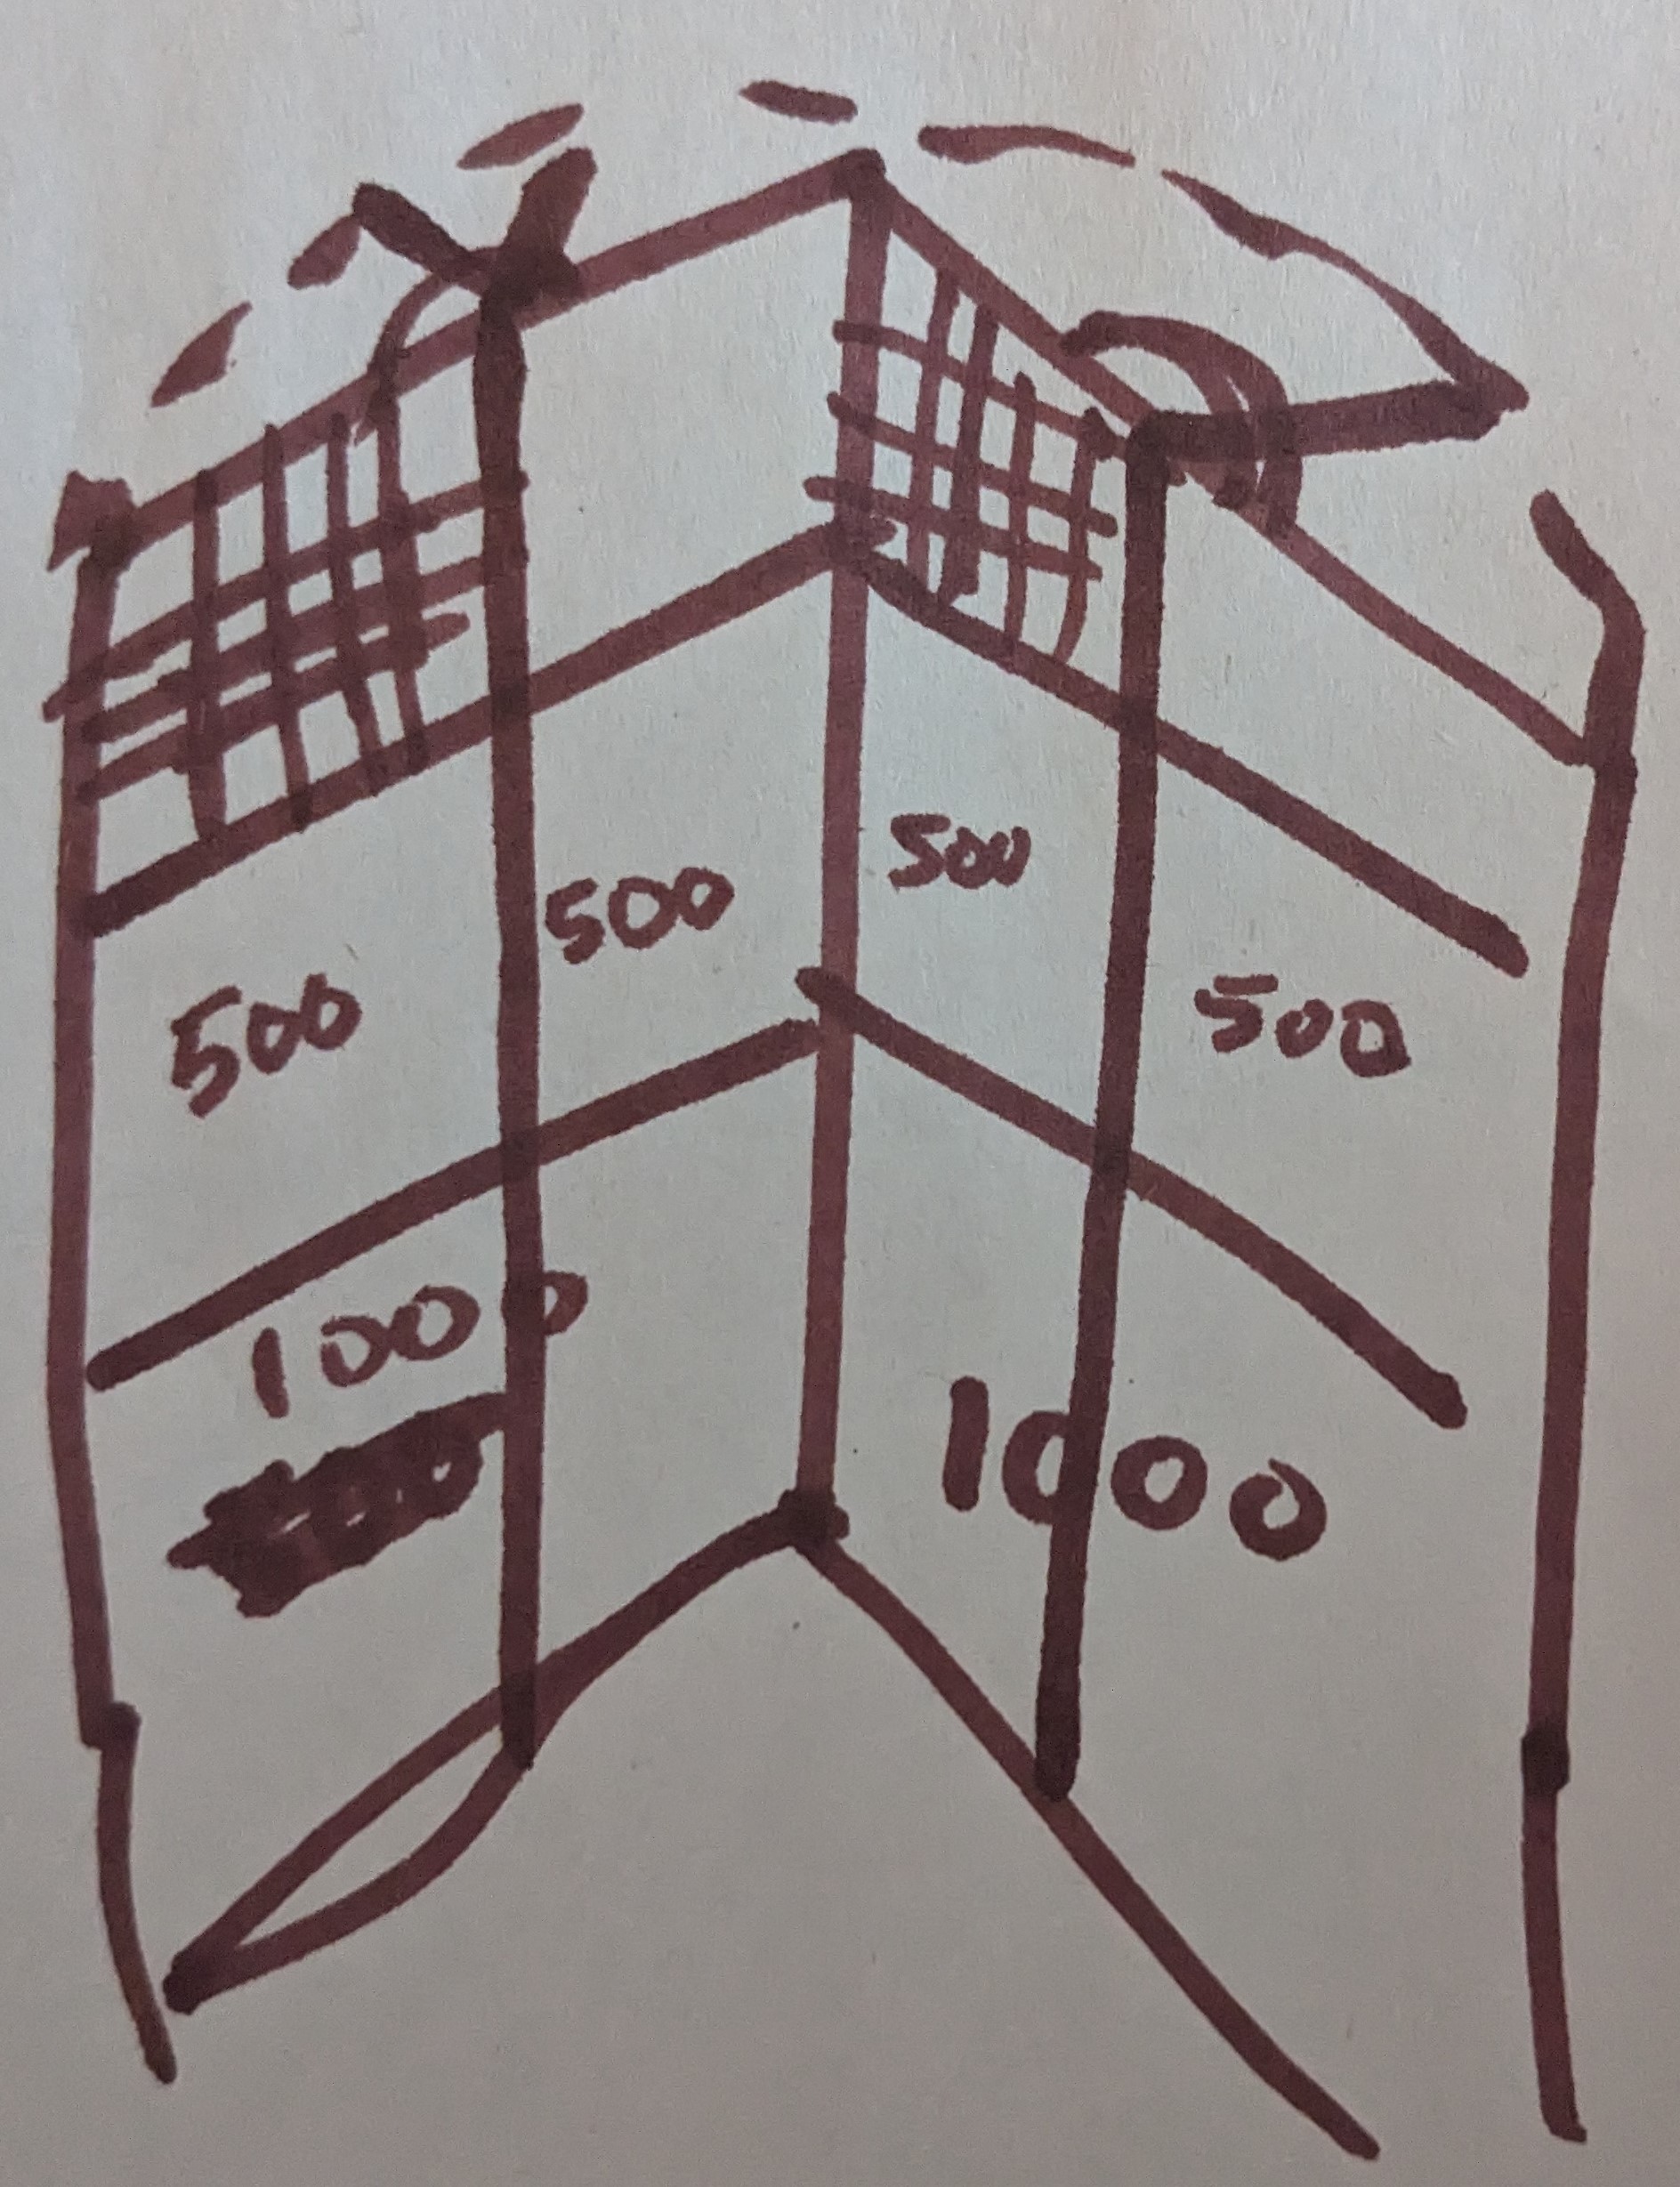 500
500
500
500
1000
1000